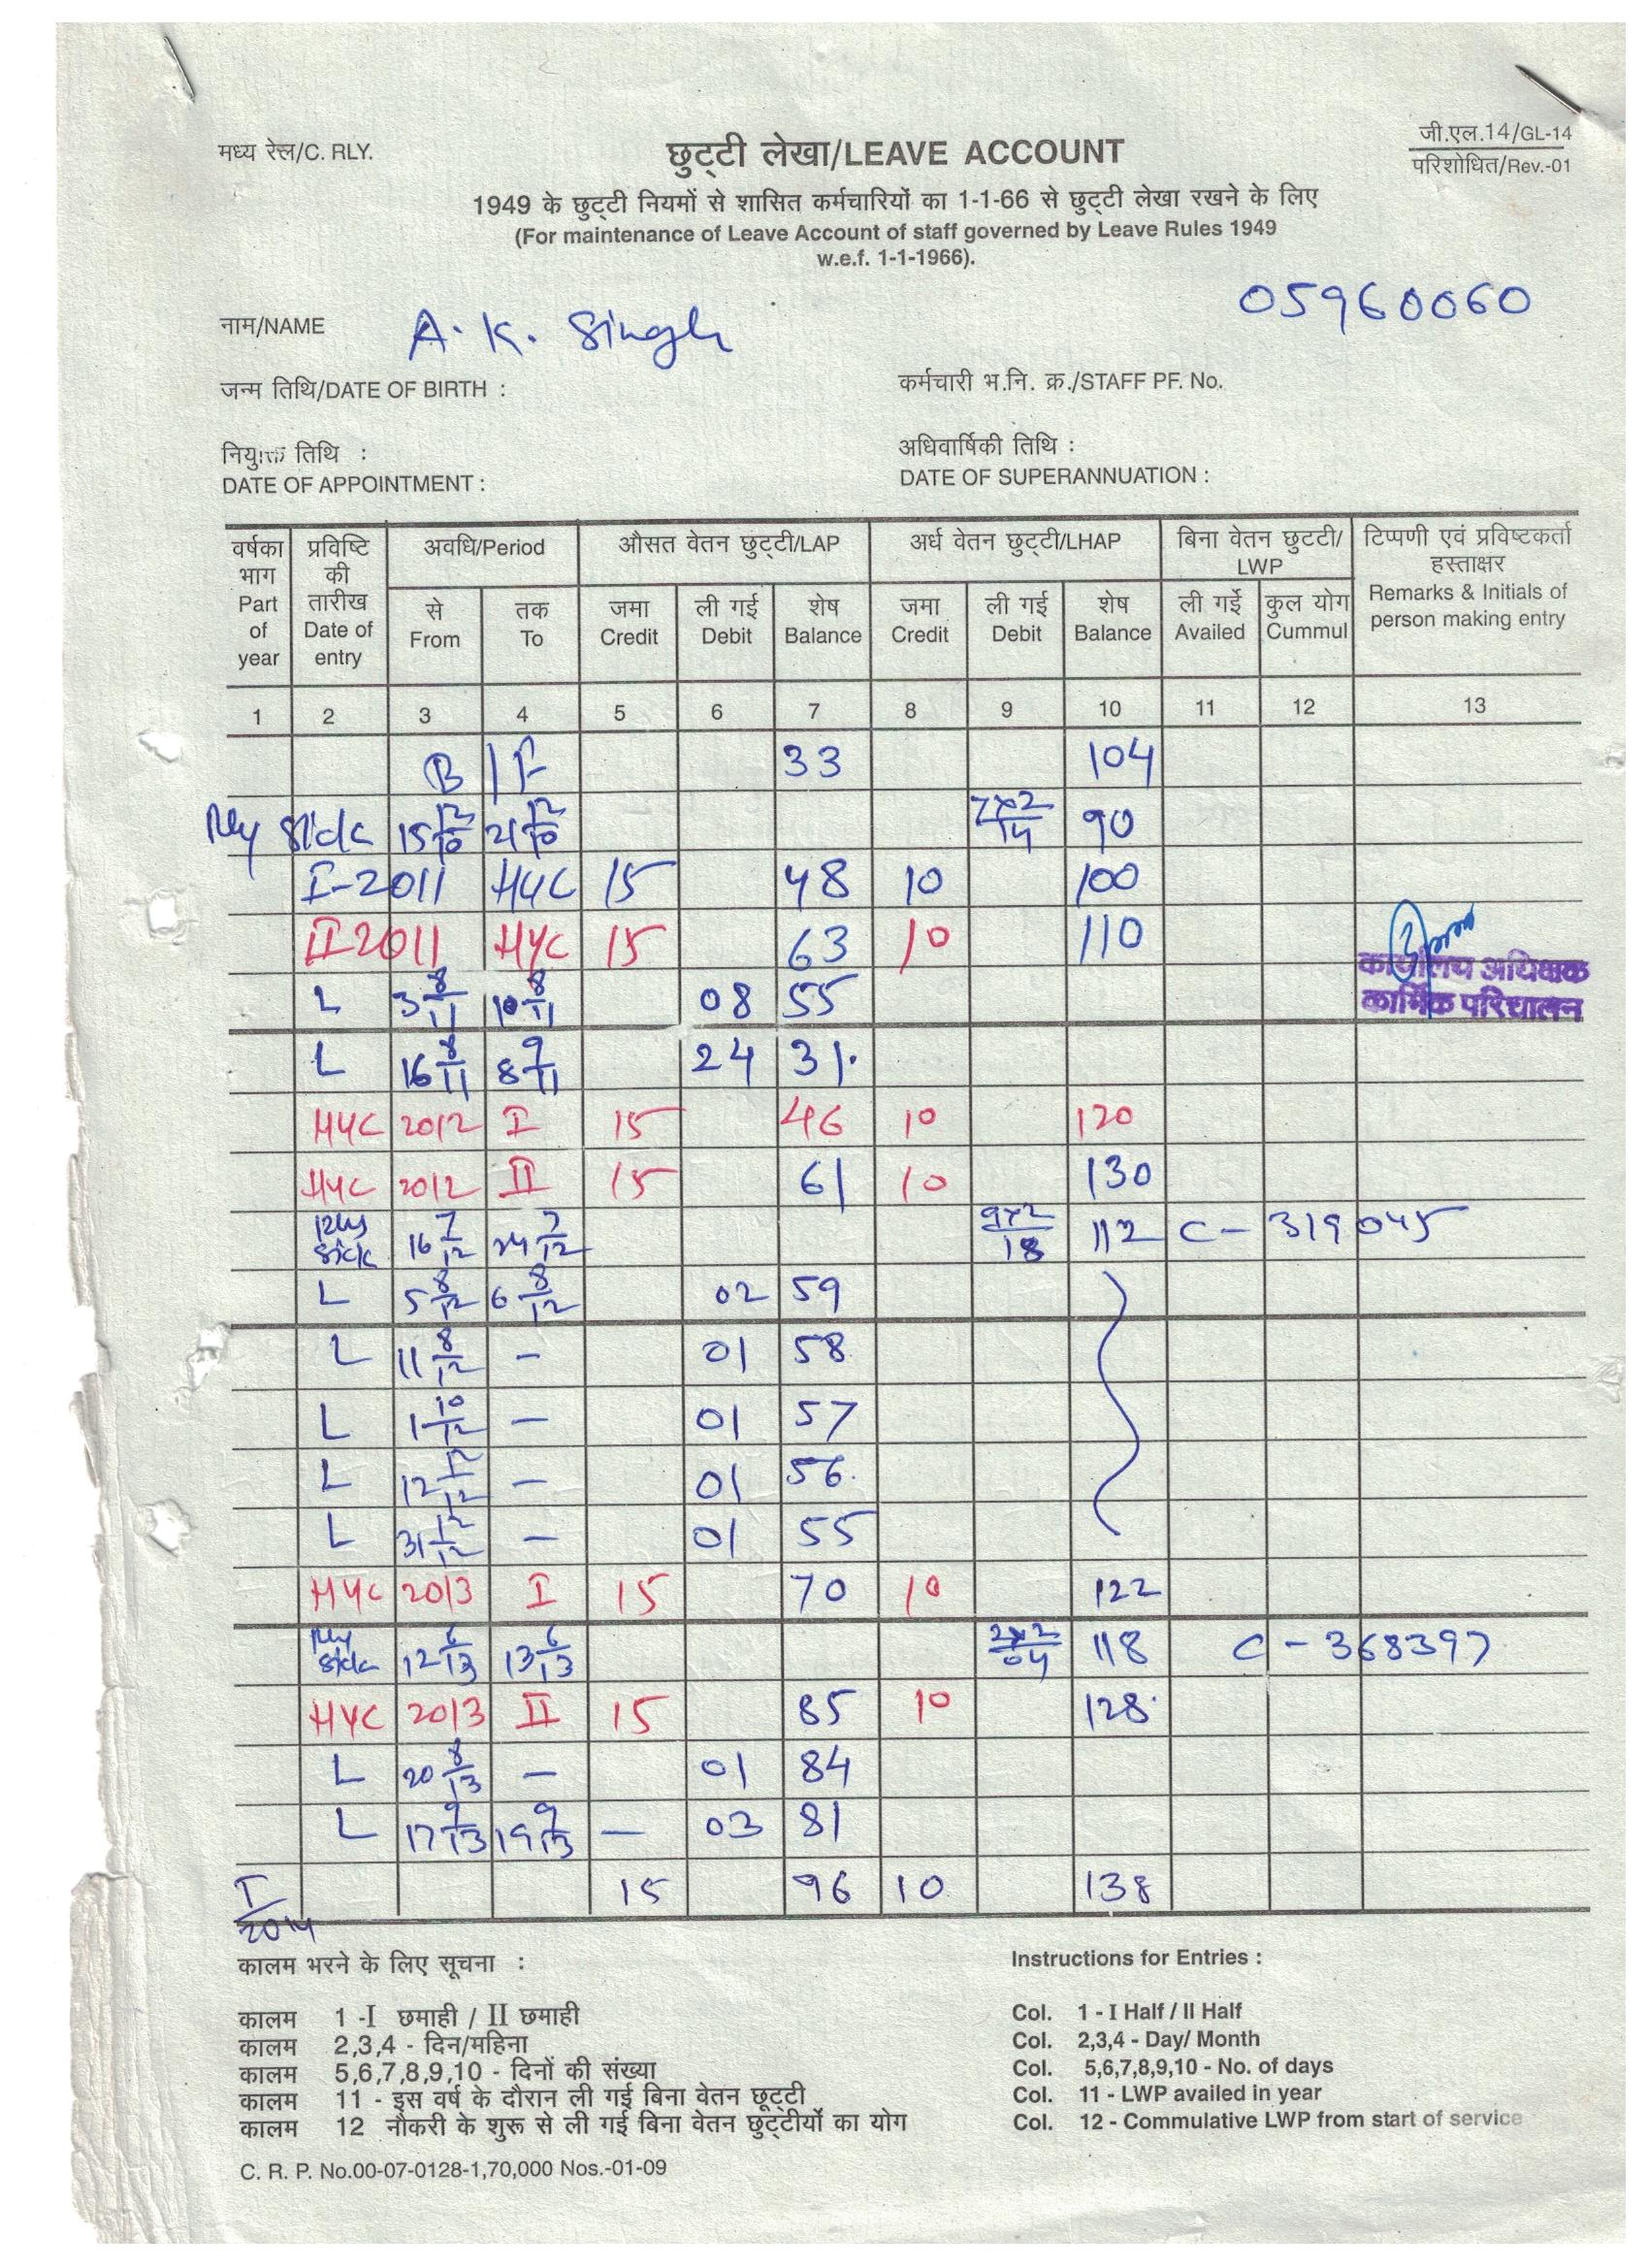 मध्य रेल/C. RLY.
छुट्टी लेखा/LEAVE ACCOUNT
जी.एल.14/GL-14
परिशोधित/Rev.-01
1949 के छुट्टी नियमों से शासित कर्मचारियों का 1-1-66 से छुट्टी लेखा रखने के लिए
(For maintenance of Leave Account of staff governed by Leave Rules 1949
w.e.f. 1-1-1966).
05960060
नाम/NAME A. K. Singh
जन्म तिथि/DATE OF BIRTH :
कर्मचारी भ.नि. क्र./STAFF PF. No.
नियुक्ति तिथि :
DATE OF APPOINTMENT :
अधिवार्षिकी तिथि :
DATE OF SUPERANNUATION :
वर्षका भाग Part of year
प्रविष्टि की तारीख Date of entry
अवधि/Period
औसत वेतन छुट्टी/LAP
अर्ध वेतन छुट्टी/LHAP
बिना वेतन छुटटी/ LWP
टिप्पणी एवं प्रविष्टकर्ता हस्ताक्षर Remarks & Initials of person making entry
से From
तक To
जमा Credit
ली गई Debit
शेष Balance
जमा Credit
ली गई Debit
शेष Balance
ली गई Availed
कुल योग Cummul
1 2 3 4 5 6 7 8 9 10 11 12 13
B/F 33 104
Rly Sick 15 12/10 21 12/10 7x2/14 90
I-2011 HYC 15 48 10 100
II 2011 HYC 15 63 10 110
L 3 8/11 10 8/11 08 55
कार्यालय अधिक्षक
कार्मिक परिचालन
L 16 8/11 8 9/11 24 31.
HYC 2012 I 15 46 10 120
HYC 2012 II 15 61 10 130
Rly Sick 16 7/12 24 7/12 9x2/18 112 C - 319045
L 5 8/12 6 8/12 02 59
L 11 8/12 - 01 58
L 1 10/12 - 01 57
L 12 12/12 - 01 56.
L 31 12/12 - 01 55
HYC 2013 I 15 70 10 122
Rly Sick 12 6/13 13 6/13 2x2/04 118 C - 368397
HYC 2013 II 15 85 10 128.
L 20 8/13 - 01 84
L 17 9/13 19 9/13 - 03 81
I/2014 15 96 10 138
कालम भरने के लिए सूचना :
कालम 1 -I छमाही / II छमाही
कालम 2,3,4 - दिन/महिना
कालम 5,6,7,8,9,10 - दिनों की संख्या
कालम 11 - इस वर्ष के दौरान ली गई बिना वेतन छूट्टी
कालम 12 नौकरी के शुरू से ली गई बिना वेतन छुट्टीयों का योग
Instructions for Entries :
Col. 1 - I Half / II Half
Col. 2,3,4 - Day/ Month
Col. 5,6,7,8,9,10 - No. of days
Col. 11 - LWP availed in year
Col. 12 - Commulative LWP from start of service
C. R. P. No.00-07-0128-1,70,000 Nos.-01-09